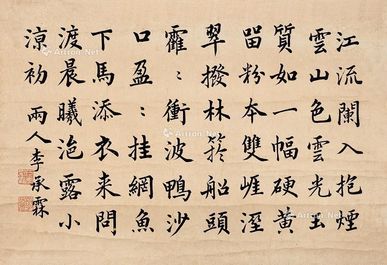 江流闌入抱煙
雲山色雲光玉
質如一幅硬黃
留粉本雙崕溼
翠撥林箊船頭
靃〻衝波鴨沙
口盈〻挂網魚
下馬添衣來問
渡晨曦浥露小
涼初 雨人李承霖